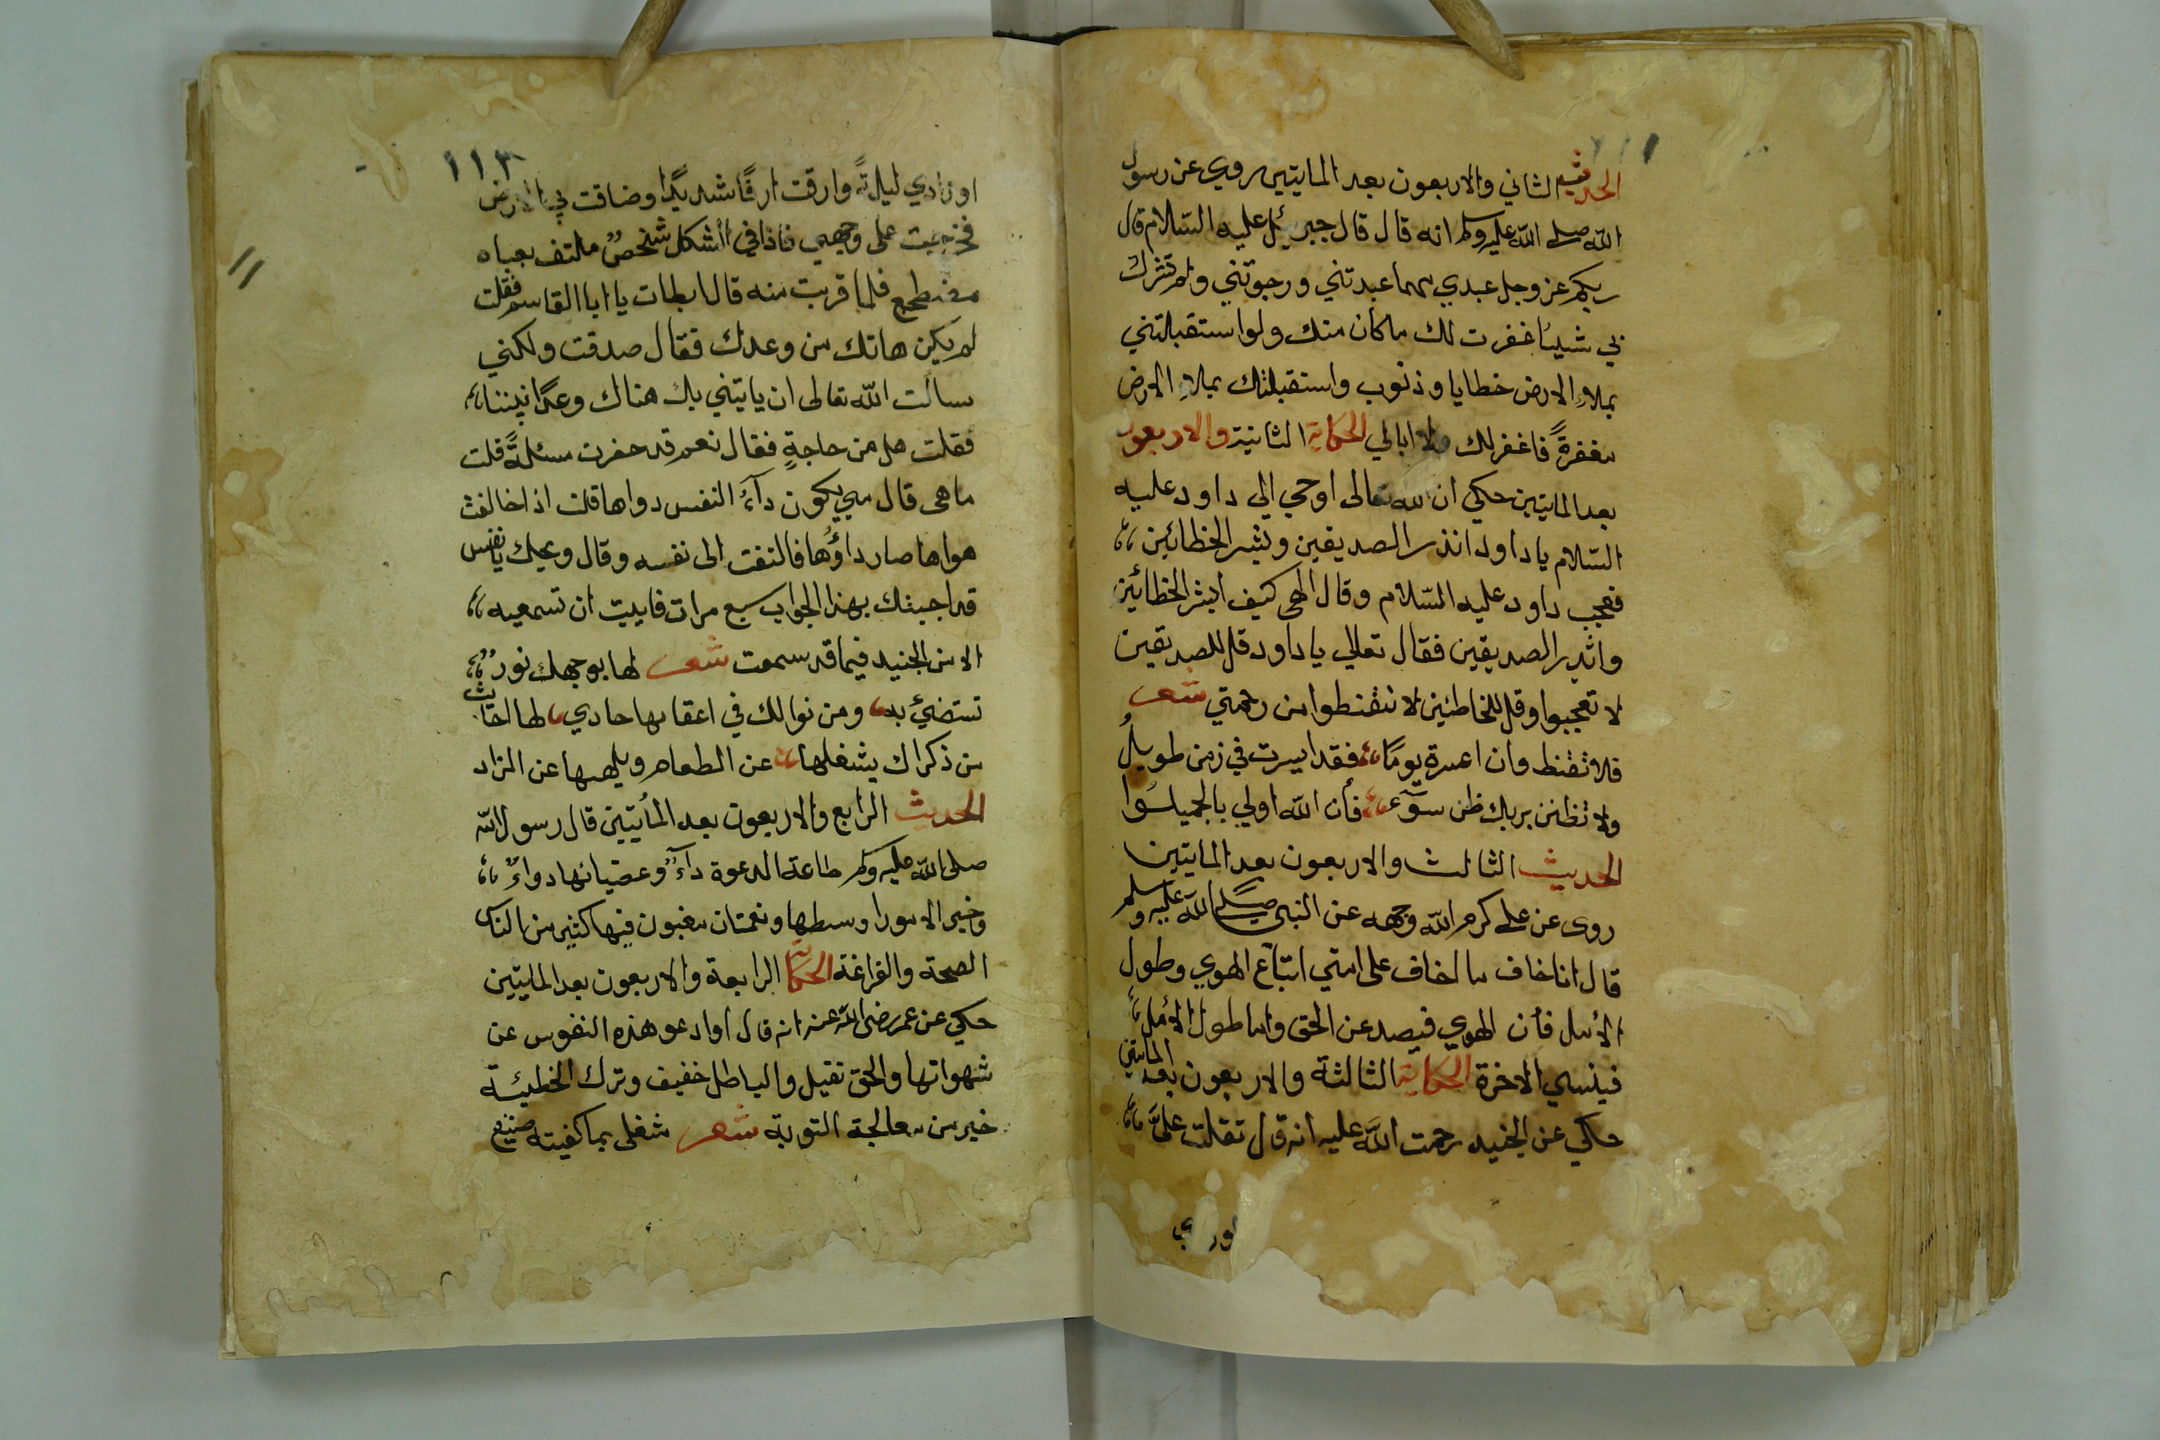 الحديث الثاني والاربعون بعد المايتين روي عن رسول
الله صلى الله عليه وسلم انه قال قال جبرئيل عليه السلام قال
ربكم عز وجل عبدي مهما عبدتني ورجوتني ولم تشرك
بي شيئا غفرت لك ما كان منك ولو استقبلتني
بملاء الارض خطايا وذنوب واستقبلتك بملاء الارض
مغفرةً فاغفر لك ولا ابالي الحكاية الثانية والاربعون
بعد المايتين حكي ان الله تعالى اوحي الى داود عليه
السلام يا داود انذر الصديقين وبشر الخطائين
فعجب داود عليه السلام وقال الهى كيف ابشر الخطائين
وانذر الصديقين فقال تعالي يا داود قل للصديقين
لا تعجبوا وقل للخاطئين لا تقنطوا من رحمتي شعر
فلا تقنط وان اعسرة يومًا فقد ايسرت في زمن طويلُ
ولا تظنن بربك ظن سوّء فأن الله اولي بالجميلُوا
الحديث الثالث والاربعون بعد المايتين
روى عن على كرم الله وجهه عن النبي صلى الله عليه وسلم
قال انا اخاف ما اخاف على امتي اتباع الهوي وطول
الأمل فأن الهوي فيصد عن الحق واما طول الأمل
فينسي الاخرة الحكاية الثالثة والاربعون بعد المايتين
حكي عن الجنيد رحمت الله عليه انه قال تقلت على
اورادي
١١٣
اورادي ليلةً وارقت ارقًا شديدًا وضاقت بي الارض
فخرجت على وجهي فاذا في الشكل شخصٌ ملتف بعباه
مضطجع فلما قربت منه قال ابطات يا ابا القاسم فقلت
لم يكن هاتك من وعدك فقال صدقت ولكني
سالت الله تعالى ان ياتيني بك هناك وعدًا بيننا
فقلت هل من حاجةٍ فقال نعم قد حضرت مسئلةً قلت
ما هى قال متي يكون دآءُ النفس دواها قلت اذا خالفت
هواها صار داؤُها فالتفت الى نفسه وقال ويحك يا نفس
قد اجبتك بهذا الجواب سبع مرات فابيت ان تسمعيه
الا من الجنيد فيما قد سمعت شعر لها بوجهك نورٌ
تستضئ به ومن نوالك في اعقابها حادي لها احاديث
من ذكراك يشغلها عن الطعام ويلهيها عن الزاد
الحديث الرابع والاربعون بعد المأيتين قال رسول الله
صلى الله عليه وسلم طاعة الدعوة دآءٌ وعصيانها دواءٌ
وخير الامور اوسطها ونعمتان مغبون فيها كثير من الناس
الصحة والفراغة الحكاية الرابعة والاربعون بعد المايتين
حكي عن عمر رضى الله عنه انه قال اوادعو هذه النفوس عن
شهواتها والحق ثقيل والباطل خفيف وترك الخطيئة
خير من معالجة التوبة شعر شغلى بما كفيته صنيع